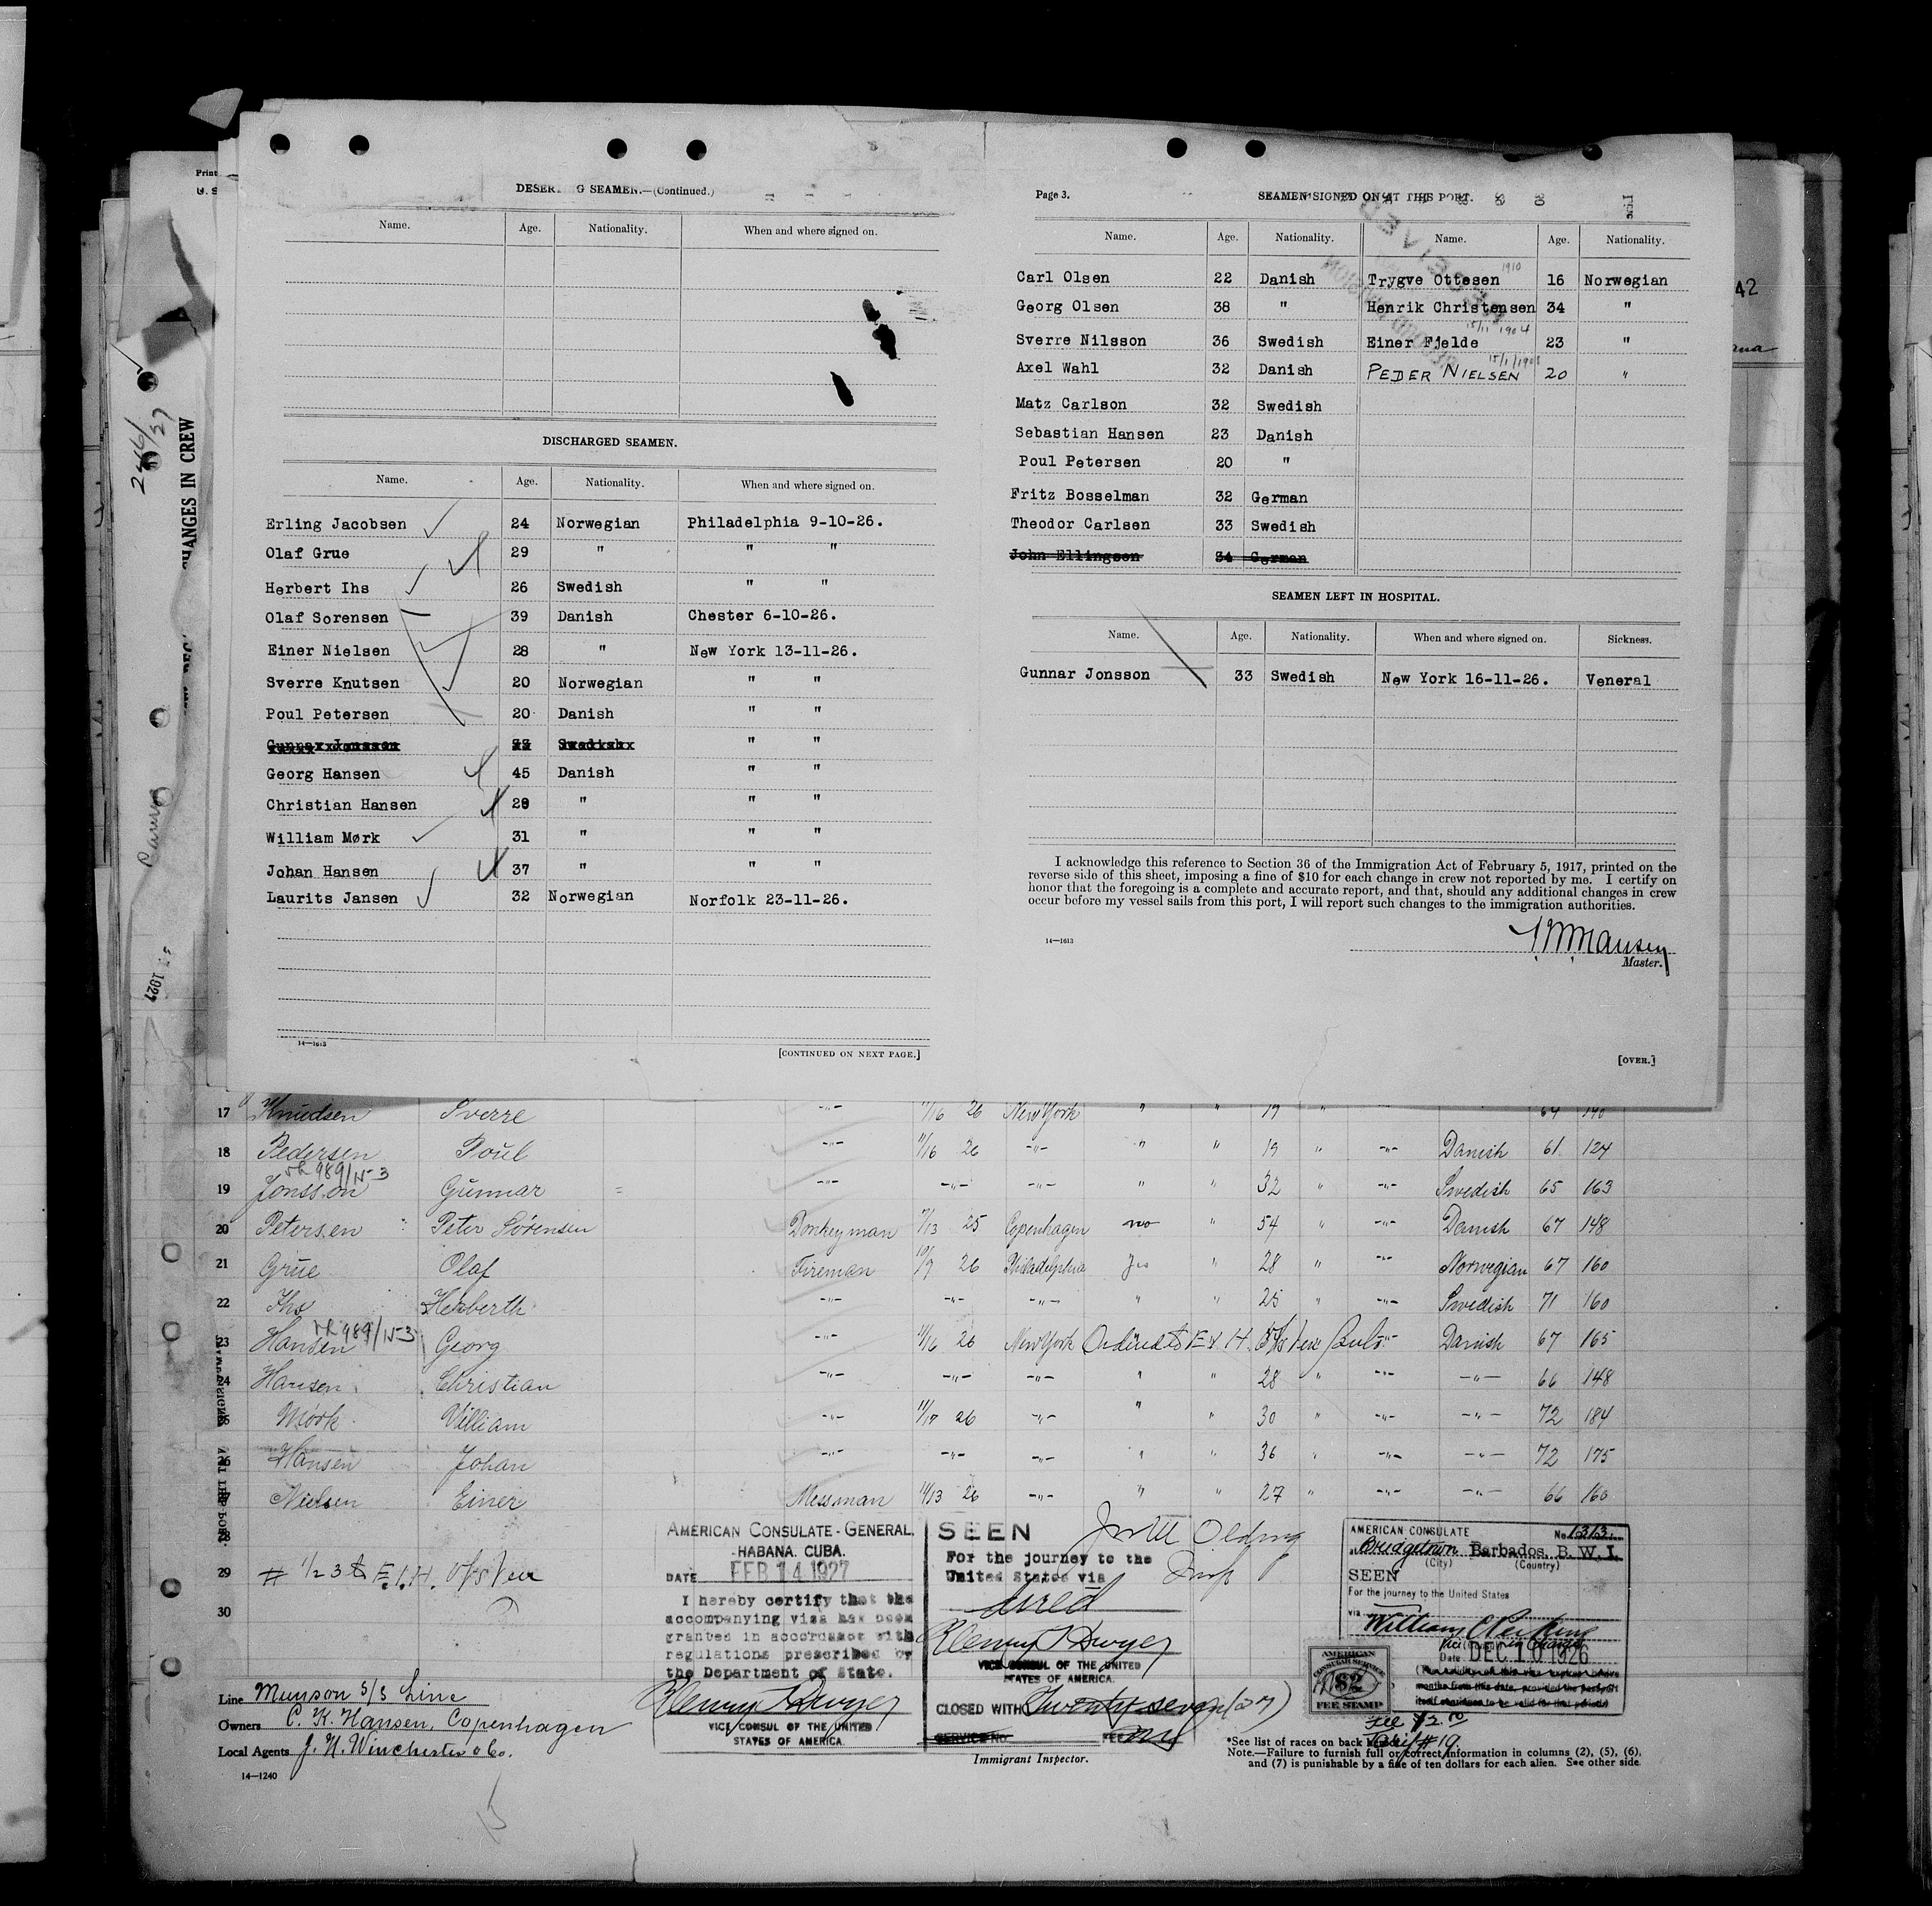 DESER G SEAMEN.—(Continued.)
Name. Age. Nationality. When and where signed on.
DISCHARGED SEAMEN.
Name. Age. Nationality. When and where signed on.
Erling Jacobsen 24 Norwegian Philadelphia 9-10-26.
Olaf Grue 29 " " "
Herbert Ihs 26 Swedish " "
Olaf Sorensen 39 Danish Chester 6-10-26.
Einer Nielsen 28 " New York 13-11-26.
Sverre Knutsen 20 Norwegian " "
Poul Petersen 20 Danish " "
Gunnar Jonsson 33 Swedish " "
Georg Hansen 45 Danish " "
Christian Hansen 29 " " "
William Mørk 31 " " "
Johan Hansen 37 " " "
Laurits Jansen 32 Norwegian Norfolk 23-11-26.
14—1613
[CONTINUED ON NEXT PAGE.]
Page 3.
SEAMEN SIGNED ON AT THIS PORT.
Name. Age. Nationality. Name. Age. Nationality.
Carl Olsen 22 Danish Trygve Ottesen 1910 16 Norwegian
Georg Olsen 38 " Henrik Christensen 34 "
Sverre Nilsson 36 Swedish Einer Fjelde 15/11 1904 23 "
Axel Wahl 32 Danish PEDER NIELSEN 20 "
Matz Carlson 32 Swedish
Sebastian Hansen 23 Danish
Poul Petersen 20 "
Fritz Bosselman 32 German
Theodor Carlsen 33 Swedish
John Ellingsen 34 German
SEAMEN LEFT IN HOSPITAL.
Name. Age. Nationality. When and where signed on. Sickness.
Gunnar Jonsson 33 Swedish New York 16-11-26. Veneral
I acknowledge this reference to Section 36 of the Immigration Act of February 5, 1917, printed on the
reverse side of this sheet, imposing a fine of $10 for each change in crew not reported by me. I certify on
honor that the foregoing is a complete and accurate report, and that, should any additional changes in crew
occur before my vessel sails from this port, I will report such changes to the immigration authorities.
14—1613
Master.
[OVER.]
2446/27
HANGES IN CREW
1927
42
17 Knudsen Sverre -"- 11/16 26 New York " " 19 " 64 140
18 Pedersen Poul -"- 11/16 26 -"- " " 19 " -"- Danish 61 124
989/15-3
19 Jonsson Gunnar -"- -"- -"- " " 32 " -"- Swedish 65 163
20 Petersen Peter Sørensen Donkeyman 7/13 25 Copenhagen no " 54 " -"- Danish 67 148
21 Grue Olaf Fireman 10/9 26 Philadelphia Yes " 28 " -"- Norwegian 67 160
22 Ihs Herberth -"- -"- -"- " " 25 " -"- Swedish 71 160
989/15-3
23 Hansen Georg -"- 11/16 26 New York -"- Danish 67 165
24 Hansen Christian -"- -"- -"- " " 28 " -"- -"- 66 148
Mörk William -"- 11/17 26 -"- " " 30 " -"- -"- 72 184
26 Hansen Johan -"- -"- -"- " " 36 " -"- -"- 72 175
Nielsen Einer Messman 11/13 26 -"- " " 27 " -"- -"- 66 160
28
29
30
AMERICAN CONSULATE-GENERAL,
HABANA, CUBA.
DATE FEB 14 1927
I hereby certify that the
accompanying visa has been
granted in accordance with
regulations prescribed by
the Department of State.
VICE CONSUL OF THE UNITED
STATES OF AMERICA.
SEEN
For the journey to the
United States via
direct
VICE CONSUL OF THE UNITED
STATES OF AMERICA.
CLOSED WITH Twenty seven (27)
SERVICE NO. FEE
Immigrant Inspector.
AMERICAN CONSULATE No. 1313.
at Bridgetown Barbados, B. W. I.
(City) (Country)
SEEN
For the journey to the United States
via
Date DEC 10 1926
AMERICAN
CONSULAR SERVICE
$2
FEE STAMP
Fee $2.00
Line Munson S/S Line
Owners C. K. Hansen, Copenhagen
Local Agents J. H. Winchester & Co.
14—1240
*See list of races on back
Note.—Failure to furnish full or correct information in columns (2), (5), (6),
and (7) is punishable by a fine of ten dollars for each alien. See other side.